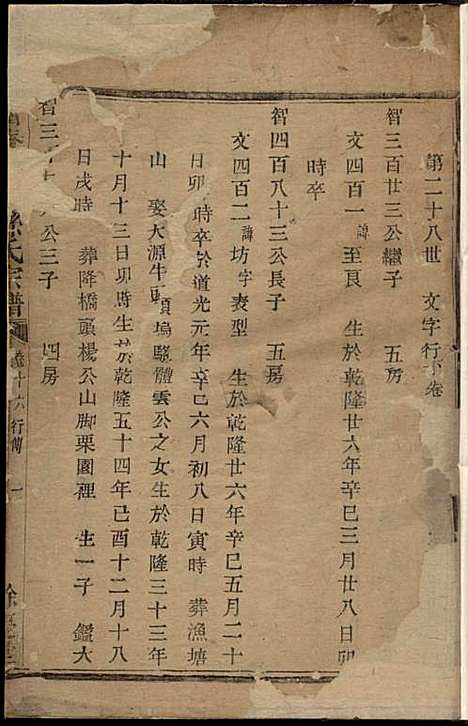 第二十八世 文字行 卷
智三百廿三公繼子 五房
文四百一諱至良 生於乾隆廿六年辛巳三月廿八日卯
時卒
智四百八十三公長子 五房
文四百二諱坊字表型 生於乾隆廿六年辛巳五月二十
日卯時卒於道光元年辛巳六月初八日寅時 葬漁塘
山 娶大源牛頭塢騣體雲公之女生於乾隆三十三年
十月十三日卯時生於乾隆五十四年己酉十二月十八
日戌時 葬降橋頭楊公山脚栗園裡 生一子 鑑大
智三 公三子 四房
氏宗譜 十六行傳 一